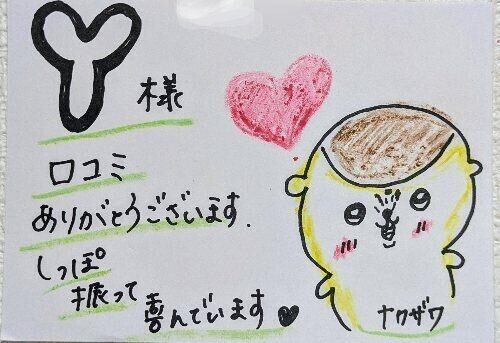 Y様
口コミ
ありがとうございます.
しっぽ
振って
喜んでいます♥
ナカザワ